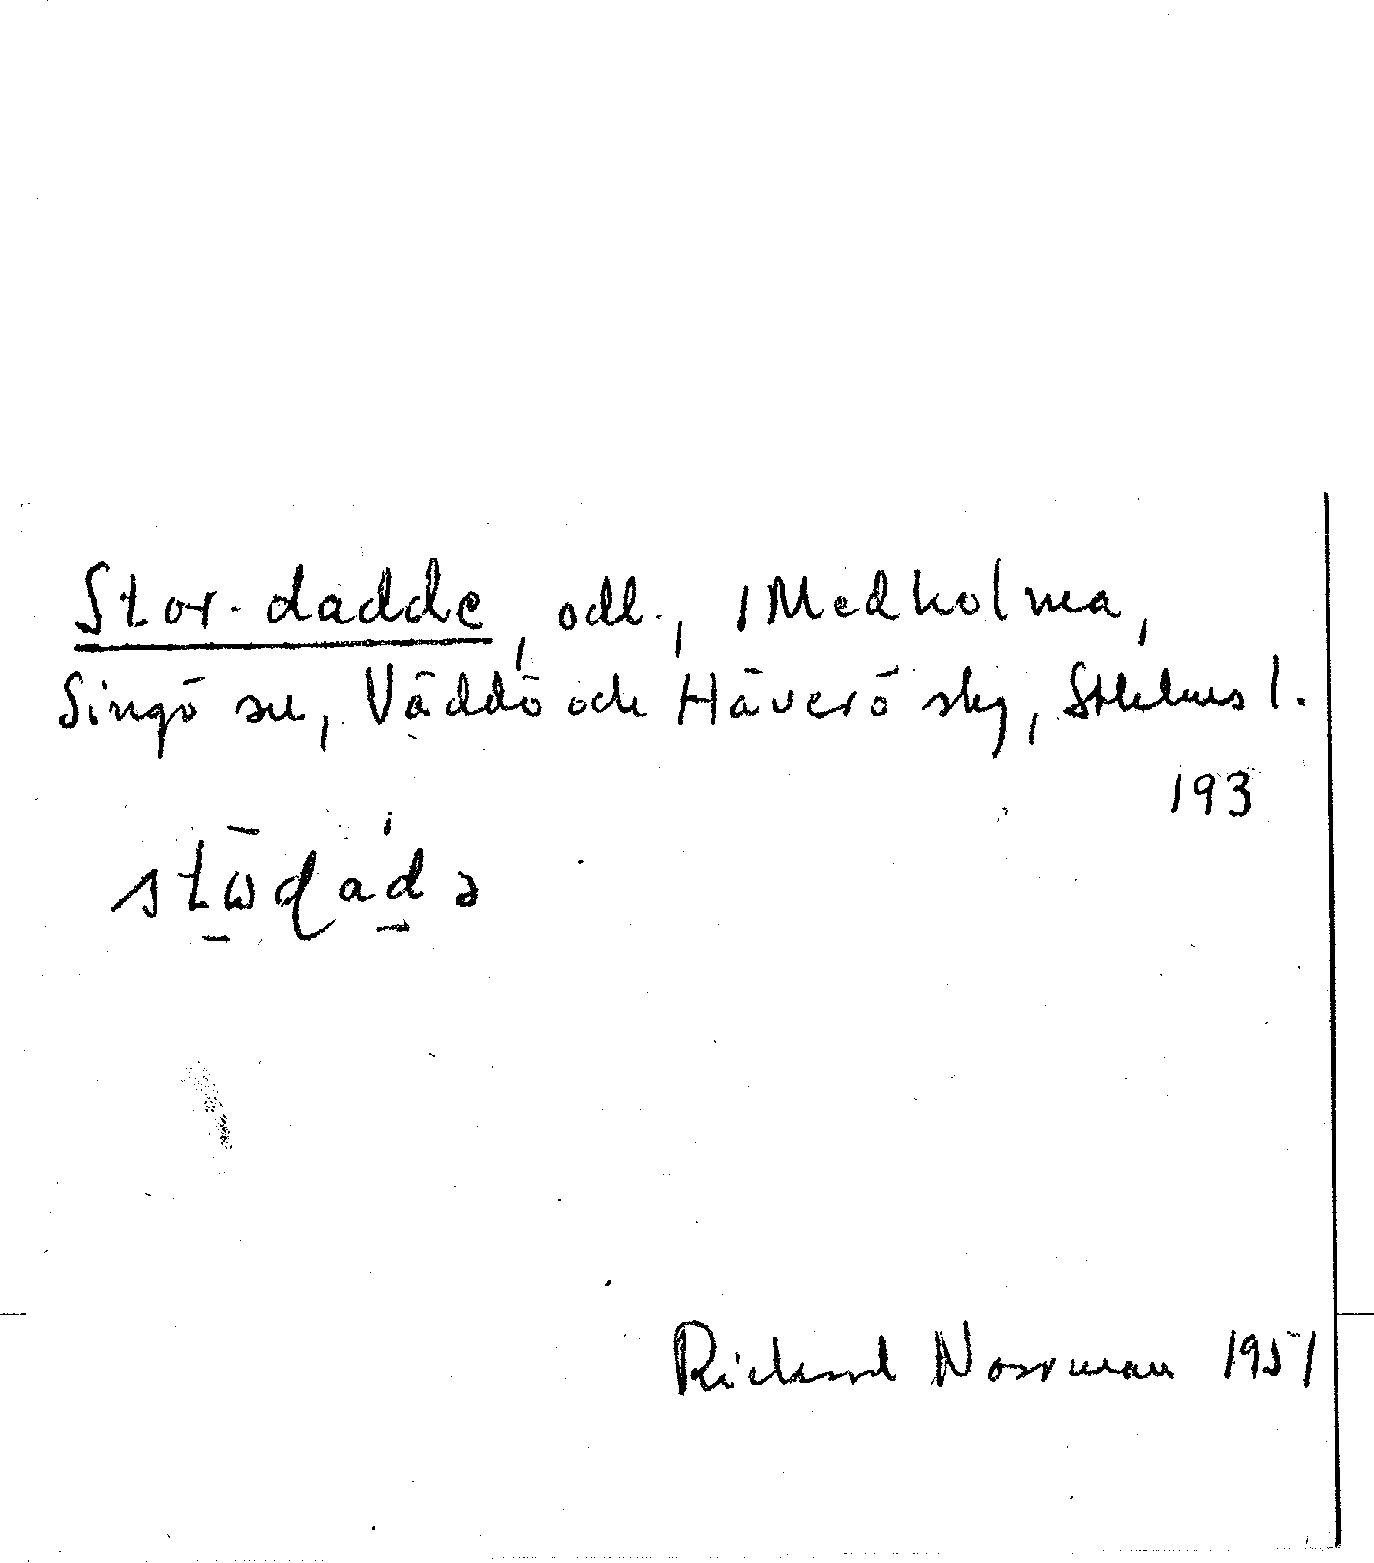 Stor-dadde, odl., 1 Medholma,
Singö sn, Väddö och Häverö skg, Sthlms l.
193
Rickard Norrman 1951